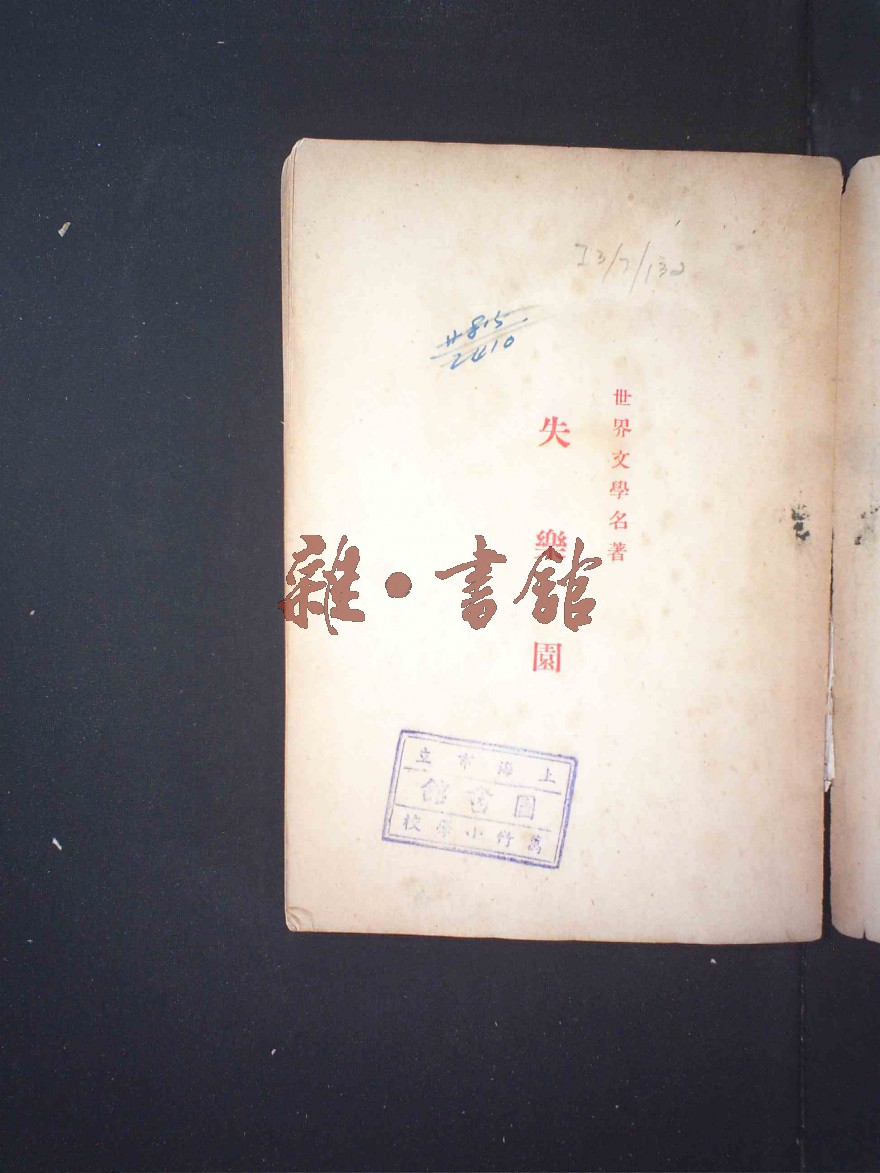 I3/7/132
H815
2410
世界文學名著
失樂園
雜·書館
上海市立
圖書館
萬竹小學校